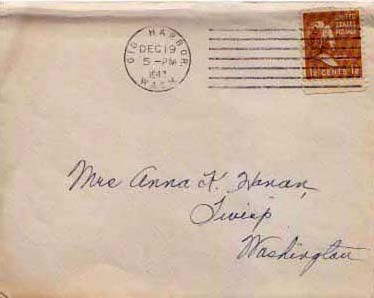 GIG HARBOR
DEC 19
5 - PM
WASH.
UNITED
STATES
POSTAGE
1½ CENTS 1½
Mrs Anna K. Hanan,
Twisp
Washington